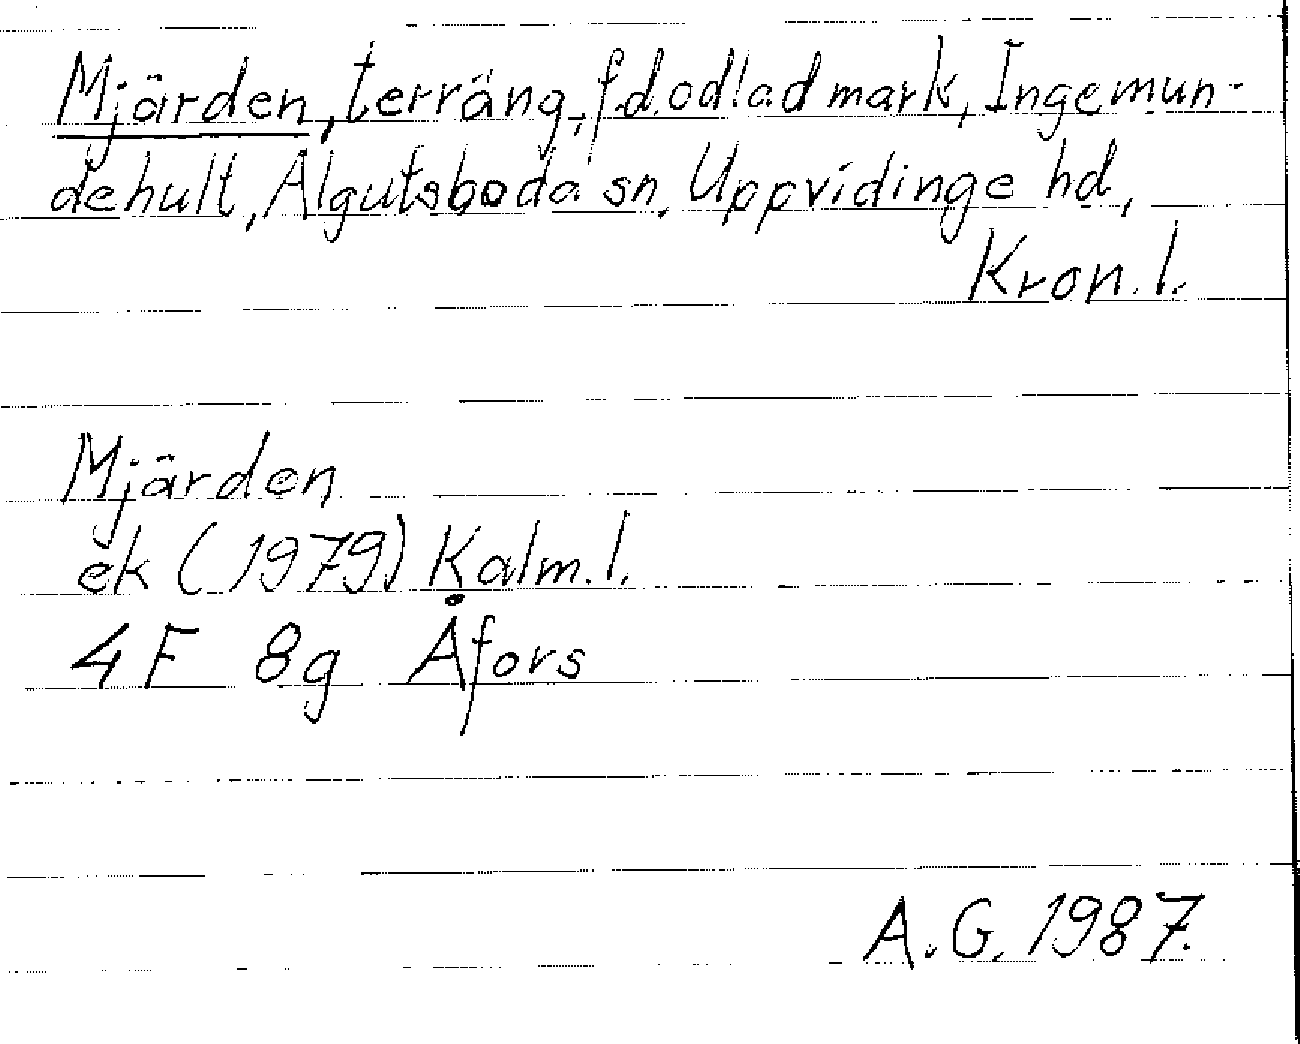 Mjärden, terräng, f.d. odlad mark, Ingemun-
dehult, Älgutsboda sn, Uppvidinge hd,
Kron. l.
Mjärden
ek (1979) Kalm. l.
4F 8g Åfors
A.G. 1987.